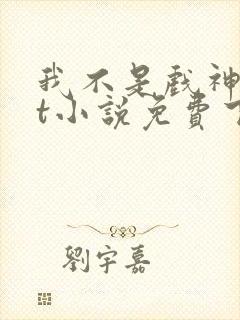 我不是戲神
t小說免費
劉宇嘉